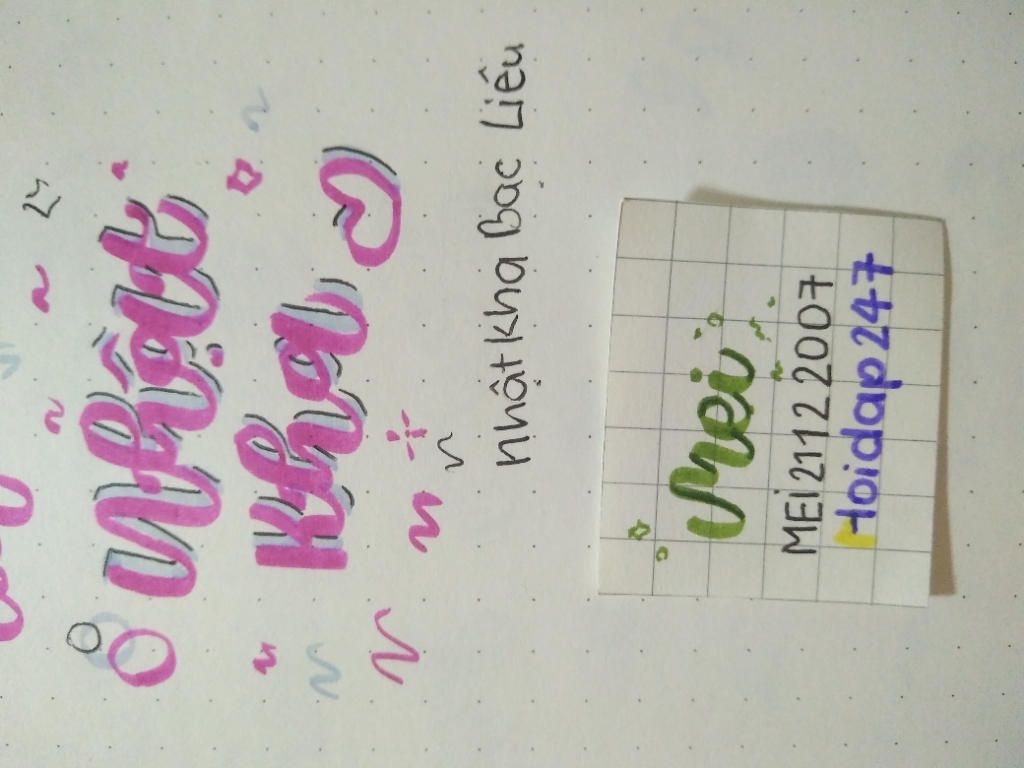 Nhật
Kha
nhật kha Bạc Liêu
Mei
MEi 2112 2007
Hoidap247